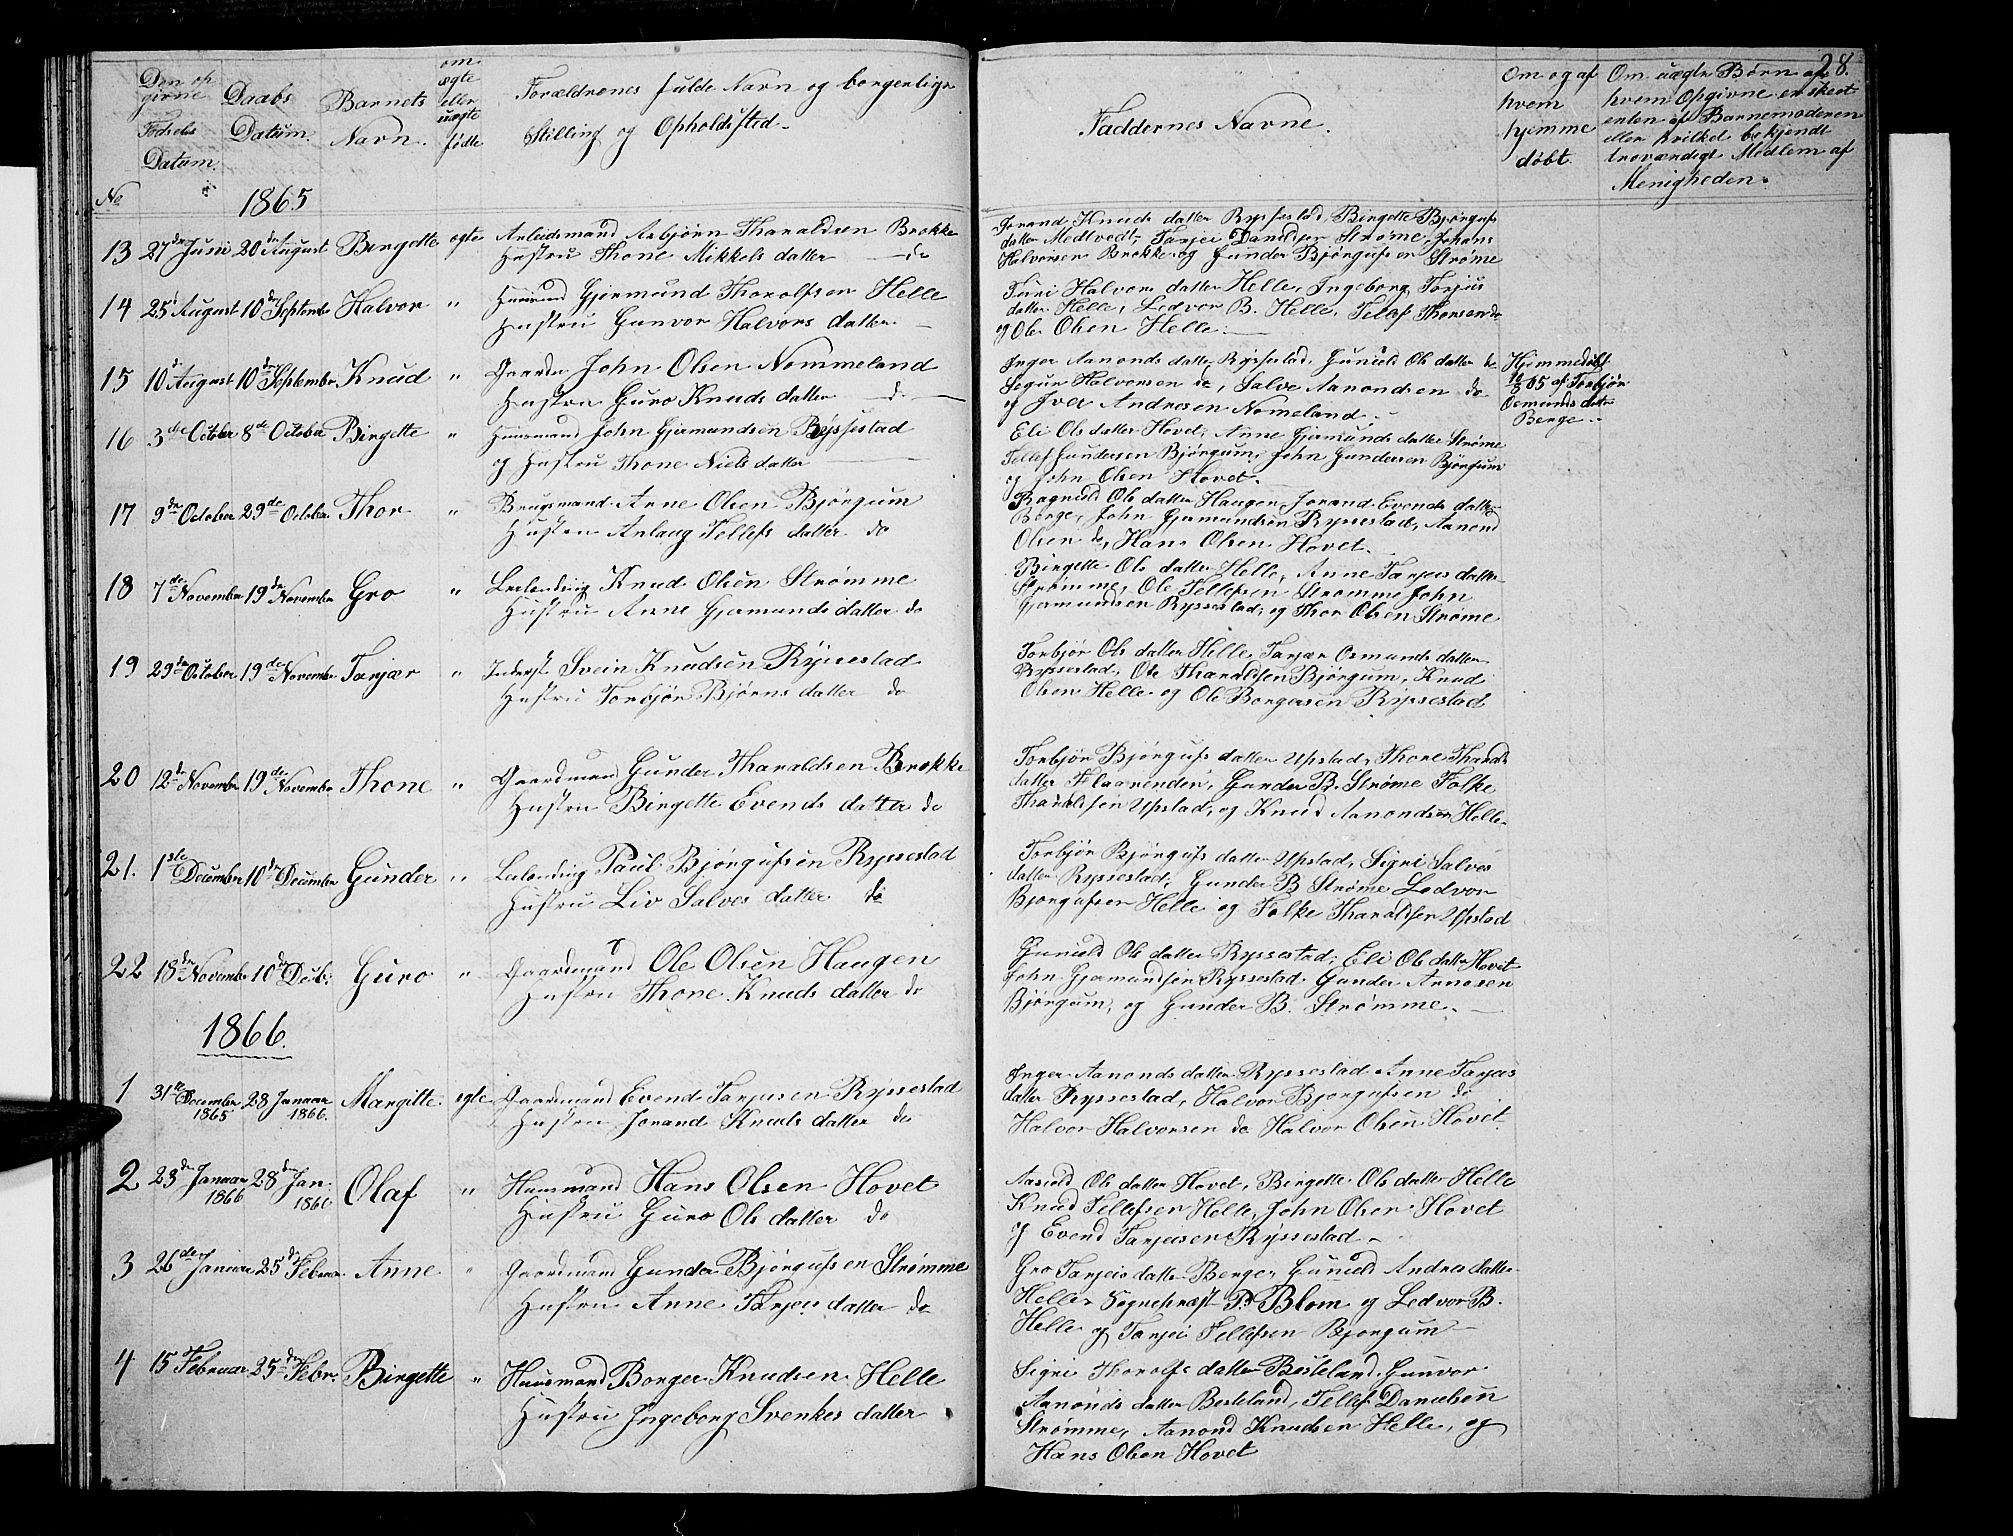 28.
Den op
givne
Fødsels
Datum.
Daabs
Datum.
Barnets
Navn.
om
ægte
eller
uægte
fødte
Forældrenes fulde Navn og borgerlige
Stilling og Opholdssted.
Faddernes Navne.
Om og af
hvem
hjemme
døbt.
Om uægte Børn af
hvem Opgivne er skeet
enten af Barnemoderen
eller hvilket bekjendt
troværdigt Medlem af
Menigheden.
No
1865
13 27de Juni 20de August Birgette ægte Arbeidsmand Asbjørn Tharaldsen Brokke
Hustru Thone Mikkels datter do
Jorand Knuds datter Ryssestad Birgette Bjørgufs
datter Medtvedt, Tarjei Danielsen Strøme, Johans
Halvorsen Brokke og Gunder Bjørgufsen Strøme
14 25d August 10de Septembr Halvor " Huusmand Gjermund Thorolfsen Helle
Hustru Gunvor Halvors datter
Turi Halvors datter Helle, Ingeborg Torjus
datter Helle, Ledvor B. Helle, Tellef Thorsen do
og Ole Olsen Helle.
15 10d August 10de Septembr Knud " Gaardm John Olsen Nommeland
Hustru Guro Knuds datter do
Inger Aanonds datter Ryssestad, Gunild Ols datter do
Segur Halvorsen do, Salve Aanondsen do
og Iver Andresen Nomeland.
Hjemmedøbt
65 af Torbjør
Osmunds datter
Berge
16 3de October 8de October Birgette " Huusmand John Gjermundsen Ryssestad
og Hustru Thone Niels datter
Eli Ols datter Hovet, Anne Gjermunds datter Strøme
Tellef Gundersen Bjørgum, John Gundersen Bjørgum
og John Olsen Hovet.
17 9de October 29de October Thor " Brugsmand Arne Olsen Bjørgum
Hustru Anlaug Tellefs datter do
Ragnild Ols datter Haugen, Jorand Evends datter
Berge, John Gjermundsen Ryssestad, Aanond
Olsen do, Hans Olsen Hovet.
18 7de November 19de Novembr Gro " Leilending Knud Olsen Strømme
Hustru Anne Gjermunds datter do
Birgette Ols datter Helle, Anne Tarjeis datter
Strømme, Ole Tellefsen Strømme John
Gjermundsen Ryssestad, og Thor Olsen Strøme
19 29de October 19de Novembr Tarjær " Inderst Svein Knudsen Ryssestad
Hustru Torbjør Bjørns datter do
Torbjør Ols datter Helle, Tarjær Osmunds datter
Ryssestad, Ole Tharaldsen Bjørgum, Knud
Olsen Helle og Ole Borgersen Ryssestad
20 12d Novembr 19de Novembr Thone " Gaardmand Gunder Tharaldsen Brokke
Hustru Birgette Evends datter do
Torbjør Bjørgufs datter Upstad, Thone Tharalds
datter Flaarenden, Gunder B. Strøme Folke
Tharaldsen Upstad, og Knud Aanondsen Helle
21. 1ste December 10de December Gunder " Leilending Paul Bjørgufsen Ryssestad
Hustru Liv Salves datter do
Torbjør Bjørgufs datter Upstad, Signi Salves
datter Ryssestad, Gunder B. Strøme Ledvor
Bjørgufsen Helle og Folke Tharaldsen Upstad
22 18de Novembr 10de Decb. Guro " Gaardmand Ole Olsen Haugen
Hustru Thone Knuds datter do
Gunild Ols datter Ryssestad, Eli Ols datter Hovet
John Gjermundsen Ryssestad Gunder Arnesen
Bjørgum, og Gunder B. Strømme.
1866.
1 31te December 1865 28 Januar 1866. Margitte ægte Gaardmand Evend Tarjeisen Ryssestad
Hustru Jorand Knuds datter do
Inger Aanonds datter Ryssestad Anne Tarjeis
datter Ryssestad, Halvor Bjørgufsen do
Halvor Halvorsen do Halvor Olsen Hovet
2 23de Januar 1866 28de Jan. 1866 Olaf " Huusmand Hans Olsen Hovet
Hustru Guro Ols datter do
Aasild Ols datter Hovet, Birgette Ols datter Helle
Knud Tellefsen Helle, John Olsen Hovet
og Evend Tarjeisen Ryssestad
3 26de Januar 25de Februar Anne " Gaardmand Gunder Bjørgufsen Strømme
Hustru Anne Tarjeis datter do
Gro Tarjeis datter Berge, Gunild Andres datter
Helle Sogneprest P. Blom og Ledvor B.
Helle og Tarjei Tellefsen Bjørgum
4 15 Februar 25de Febr Birgette " Huusmand Borger Knudsen Helle
Hustru Ingeborg Svenkes datter
Signi Thorolfs datter Besteland, Gunvor
Aanonds datter Besteland, Tellef Danielsen
Strømme, Aanond Knudsen Helle, og
Hans Olsen Hovet